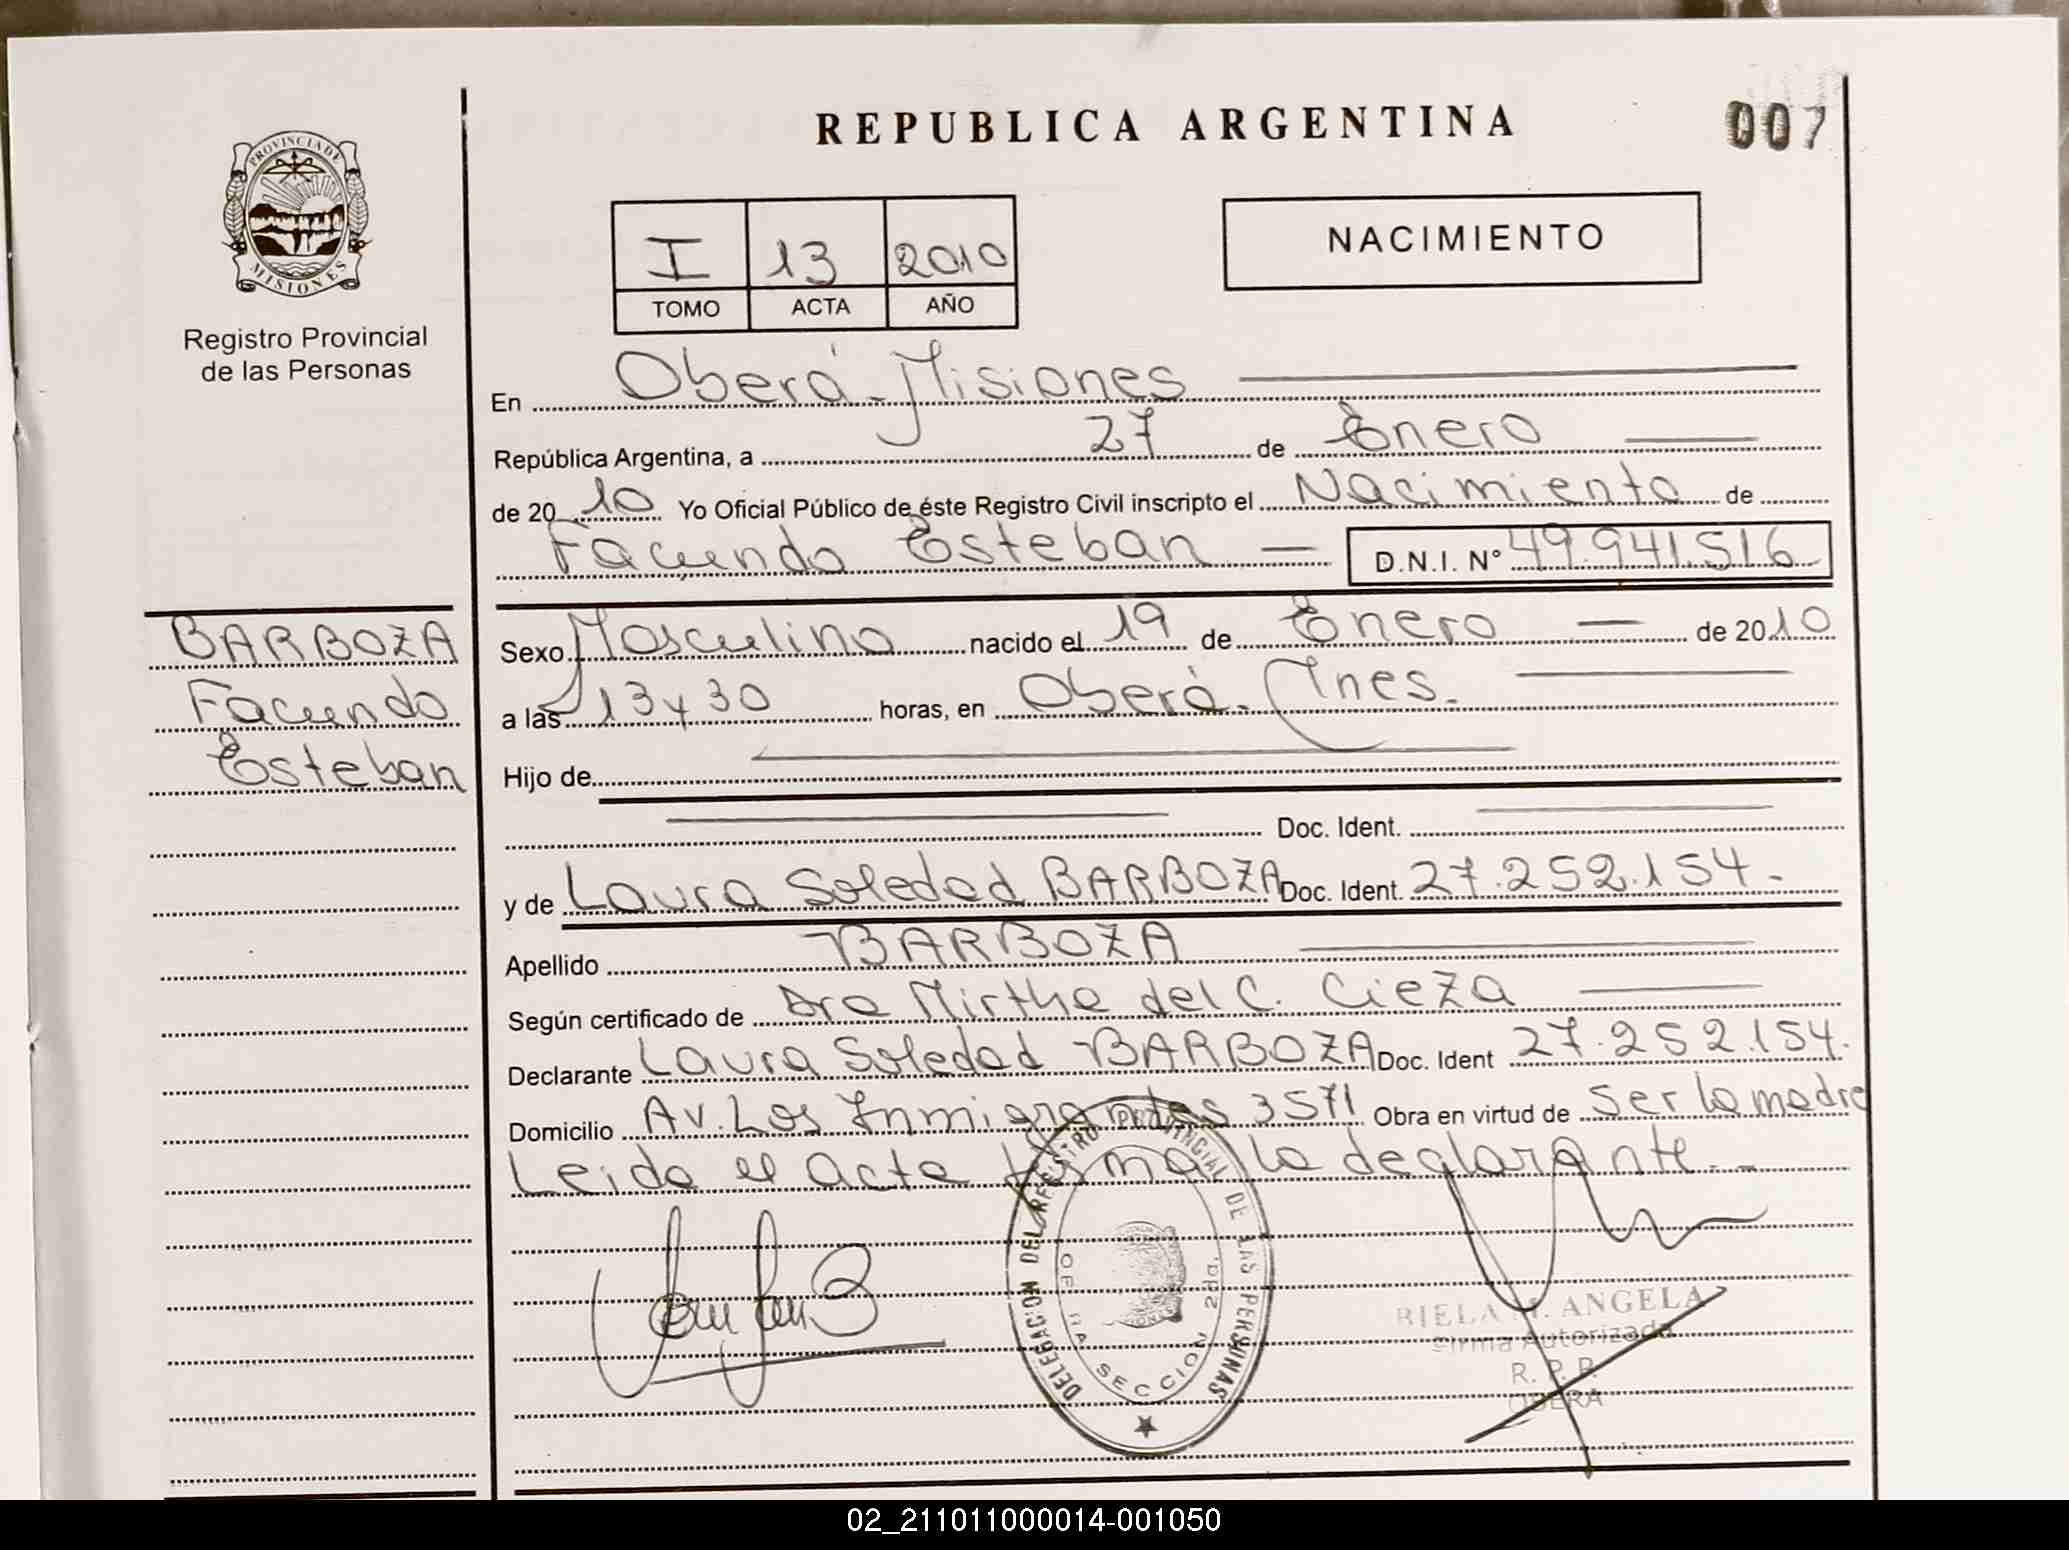 REPUBLICA ARGENTINA
007
PROVINCIA DE
MISIONES
Registro Provincial
de las Personas
I 13 2010
TOMO ACTA AÑO
NACIMIENTO
En Oberá - Misiones
República Argentina, a 27 de Enero
de 2010 Yo Oficial Público de éste Registro Civil inscripto el Nacimiento de
Facundo Esteban D.N.I. N° 49.941.516
BARBOZA
Facundo
Esteban
Sexo Masculino nacido el 19 de Enero de 2010
a las 13 y 30 horas, en Oberá - Mnes.
Hijo de
Doc. Ident.
y de Laura Soledad BARBOZA Doc. Ident. 27.252.154.-
Apellido BARBOZA
Según certificado de Dra Mirtha del C. Cieza
Declarante Laura Soledad BARBOZA Doc. Ident 27.252.154.
Domicilio Av. Los Inmigrantes 3571 Obra en virtud de ser la madre
Leida el acta firma la declarante.-
DELEGACION DEL REGISTRO PROVINCIAL DE LAS PERSONAS
SECCION 2da.
ANGELA
Firma Autorizada
R. P. P.
OBERA
02_211011000014-001050